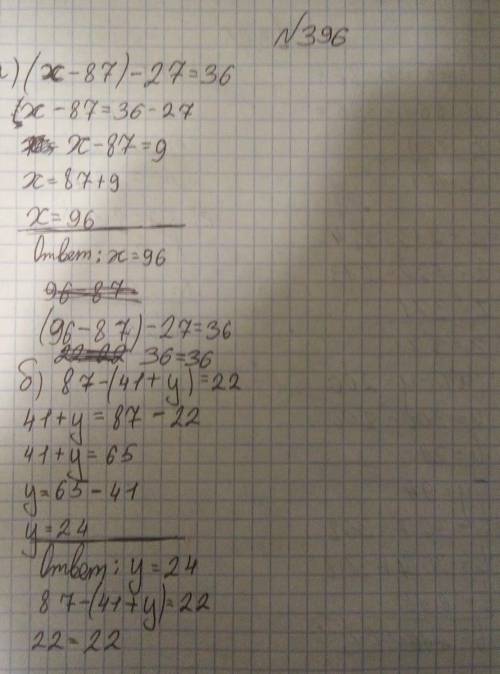 №396
а) (x-87)-27=36
x-87=36-27
x-87=9
x=87+9
x=96
Ответ: x=96
96-87
(96-87)-27=36
22=22 36=36
б) 87-(41+y)=22
41+y=87-22
41+y=65
y=65-41
y=24
Ответ: y=24
87-(41+y)=22
22=22